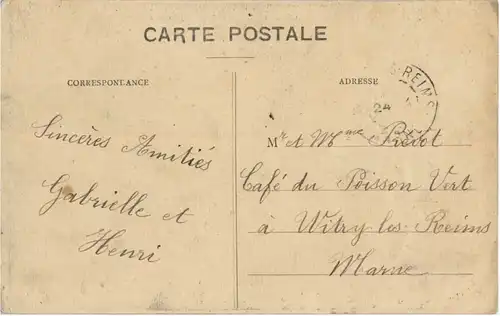 CARTE POSTALE
CORRESPONDANCE
ADRESSE
REIMS
24
Sincères Amitiés
Gabrielle et
Henri
Mr et Mme Prévot
Café du Poisson Vert
à Witry-les-Reims
Marne